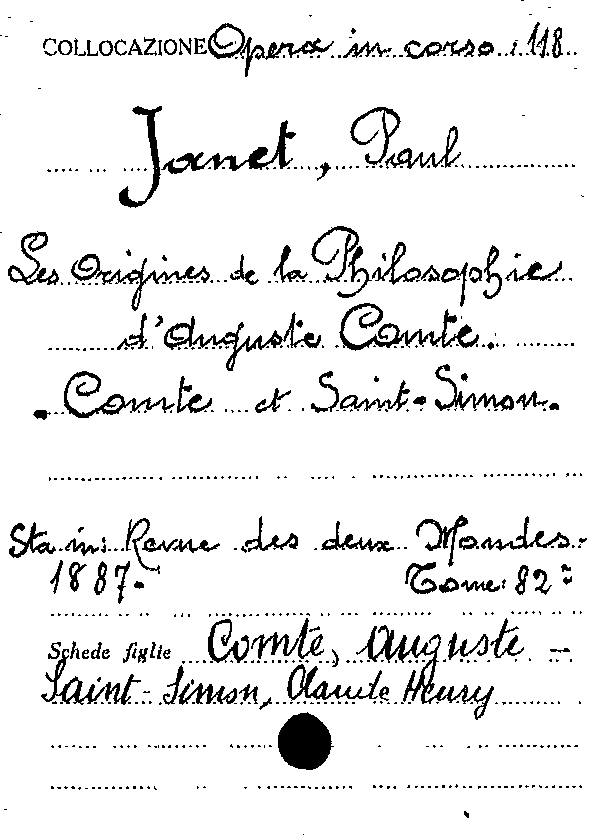 COLLOCAZIONE Opera in corso : 118
Janet, Paul
Les Origines de la Philosophie
d'Auguste Comte.
- Comte et Saint-Simon.
Sta in: Revue des deux Mondes.-
1887.- Tome: 82
Schede figlie Comte, Auguste -
Saint-Simon, Claude Henry